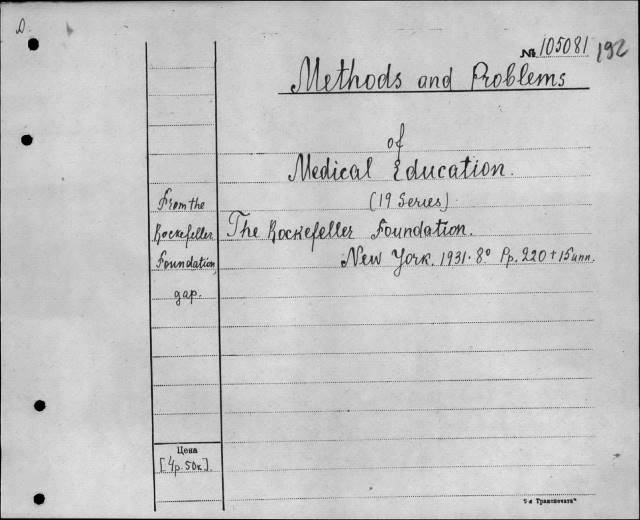 D.
№ 105081 192
Methods and Problems
of
Medical Education.
(19 Series)
From the
Rockefeller
Foundation
дар.
The Rockefeller Foundation.
New York. 1931. 8° Pp. 220 + 15 unn.
Цена
[4р. 50к].
7-я Транспечать"